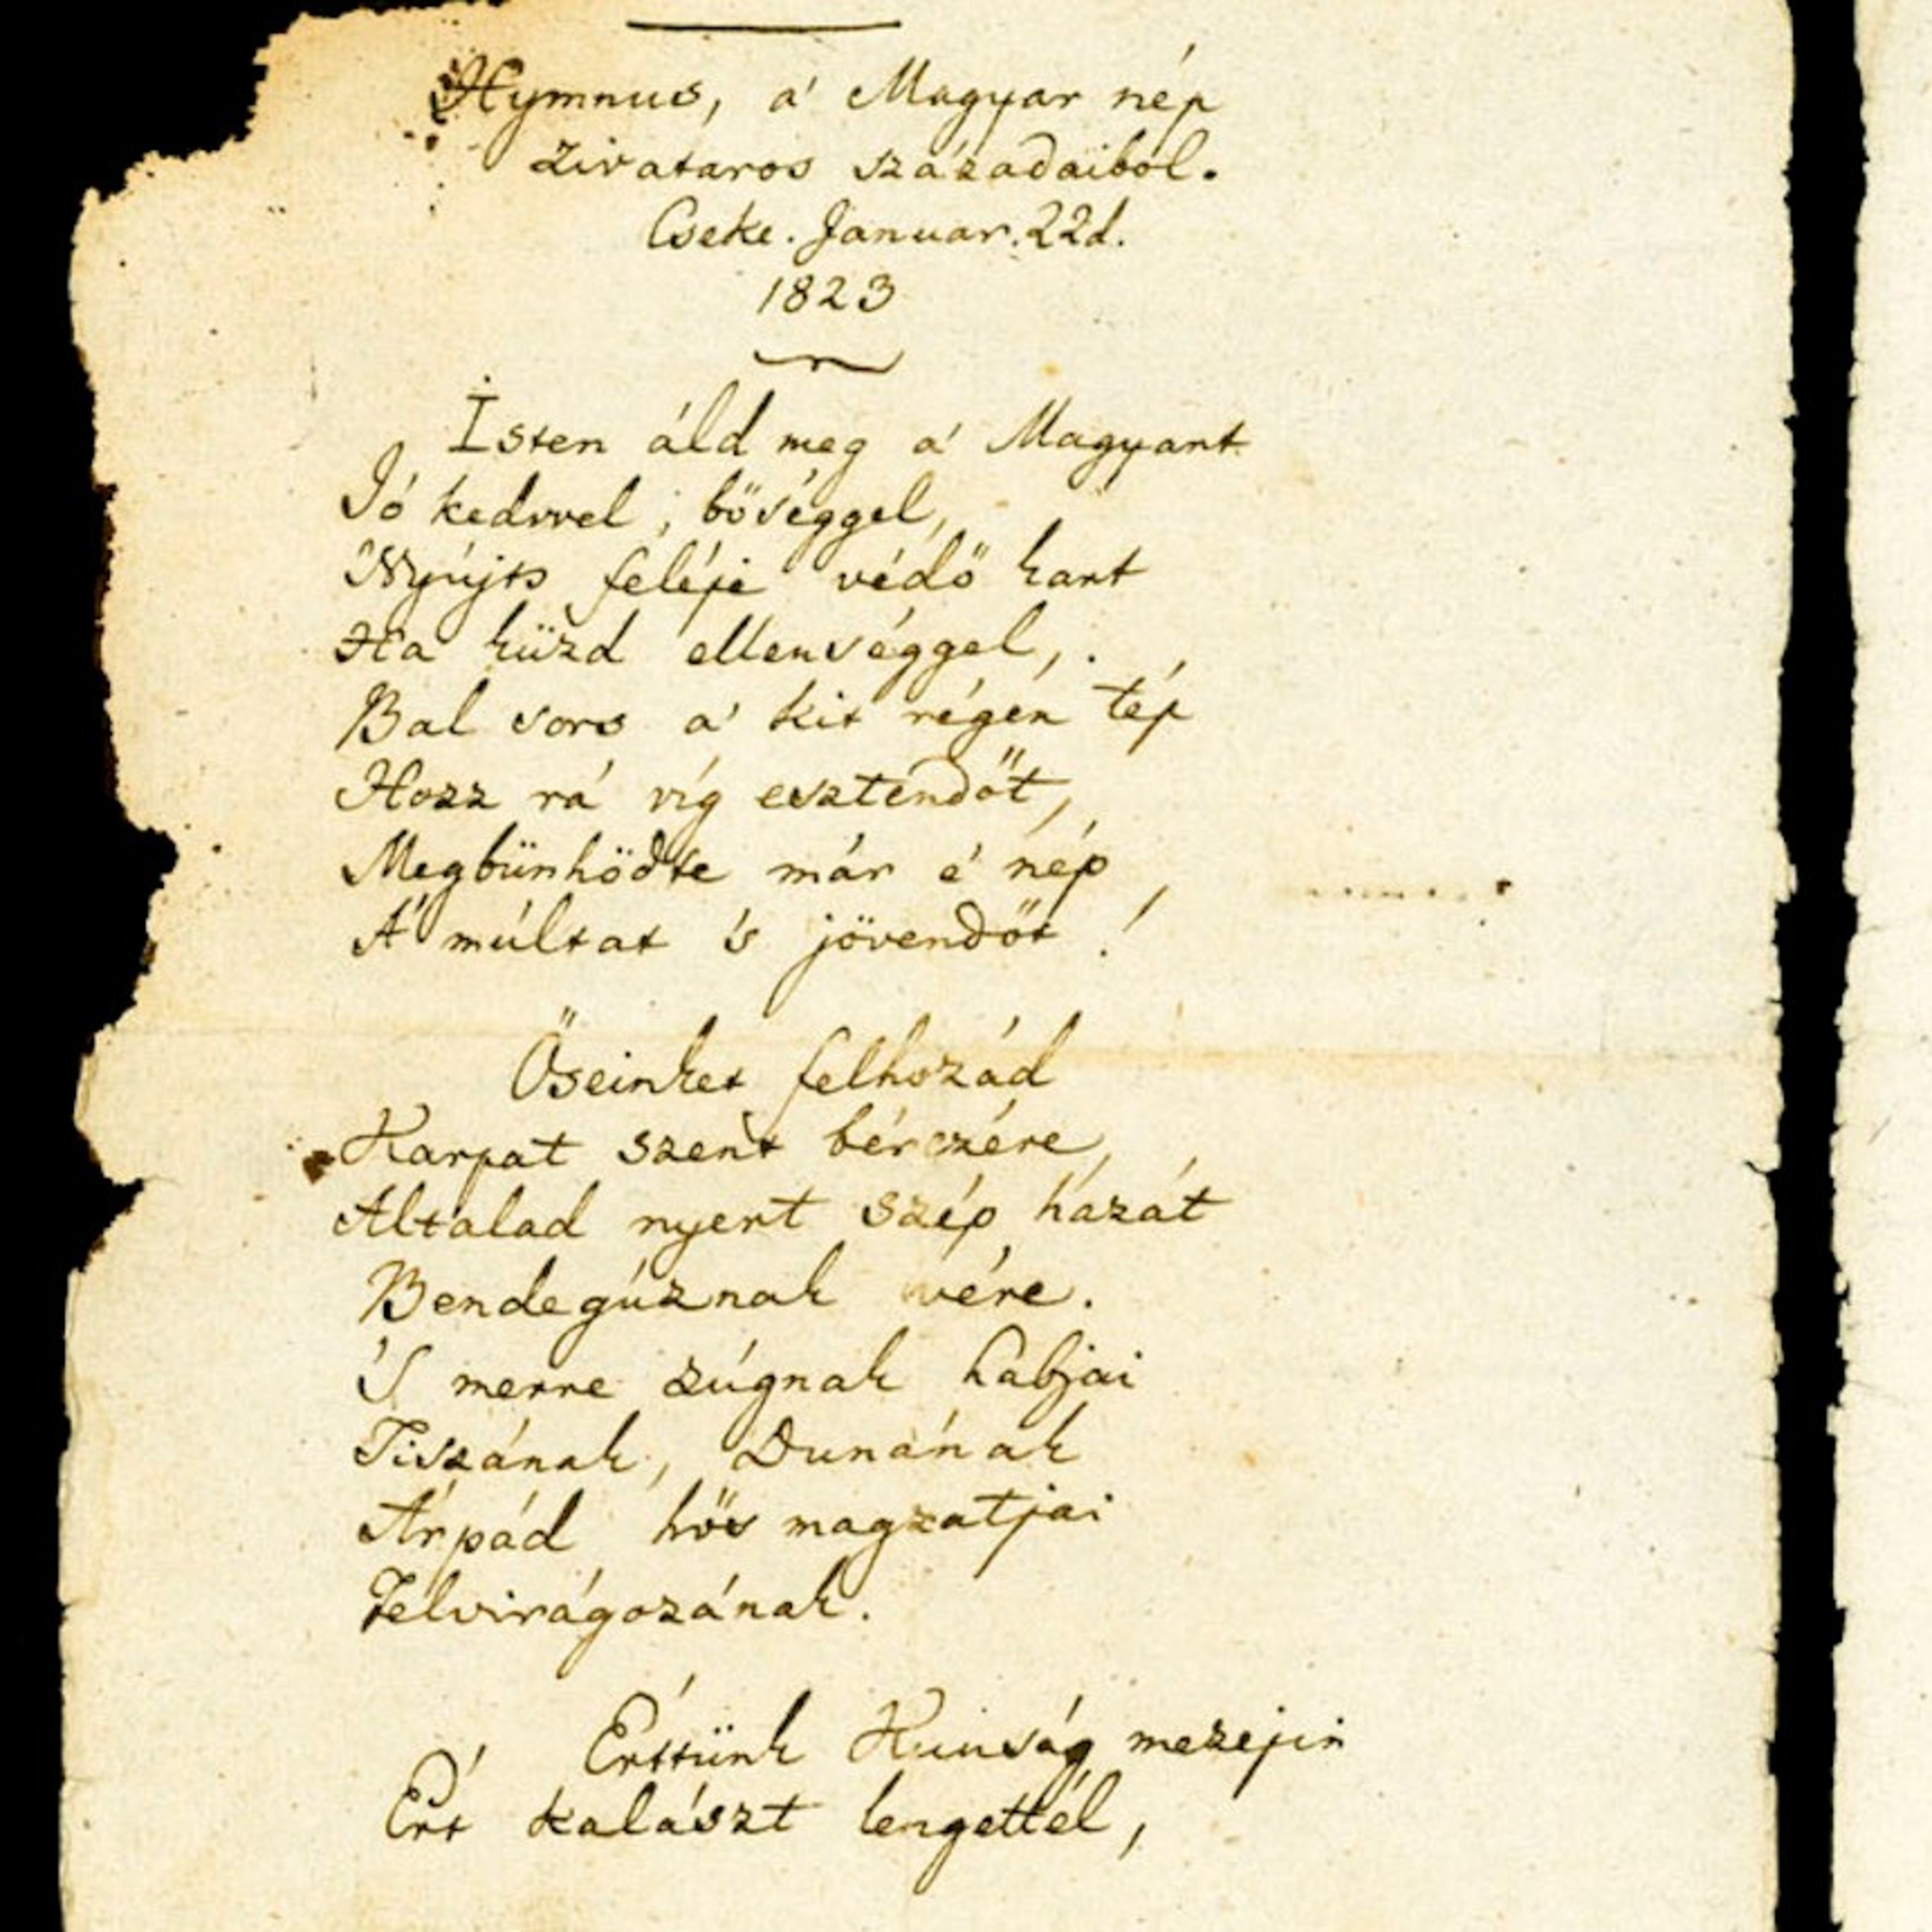 Hymnus, a' Magyar nép
zivataros századaiból.
Cseke. Januar. 22d.
1823
Isten áld meg a' Magyart
Jó kedvvel, bőséggel,
Nyújts feléje védő kart
Ha küzd ellenséggel,
Bal sors a' kit régén tép
Hozz rá víg esztendőt,
Megbünhödte már é nép
A' múltat 's jövendőt!
Őseinket felhozád
Karpat szent bérczére,
Altalad nyert szép házát
Bendegúznak vére.
'S merre zúgnak habjai
Tiszának, Dunának
Árpád hős magzatjai
Felvirágozának.
Érttünk Kunság mezején
Ért kalászt lengettél,